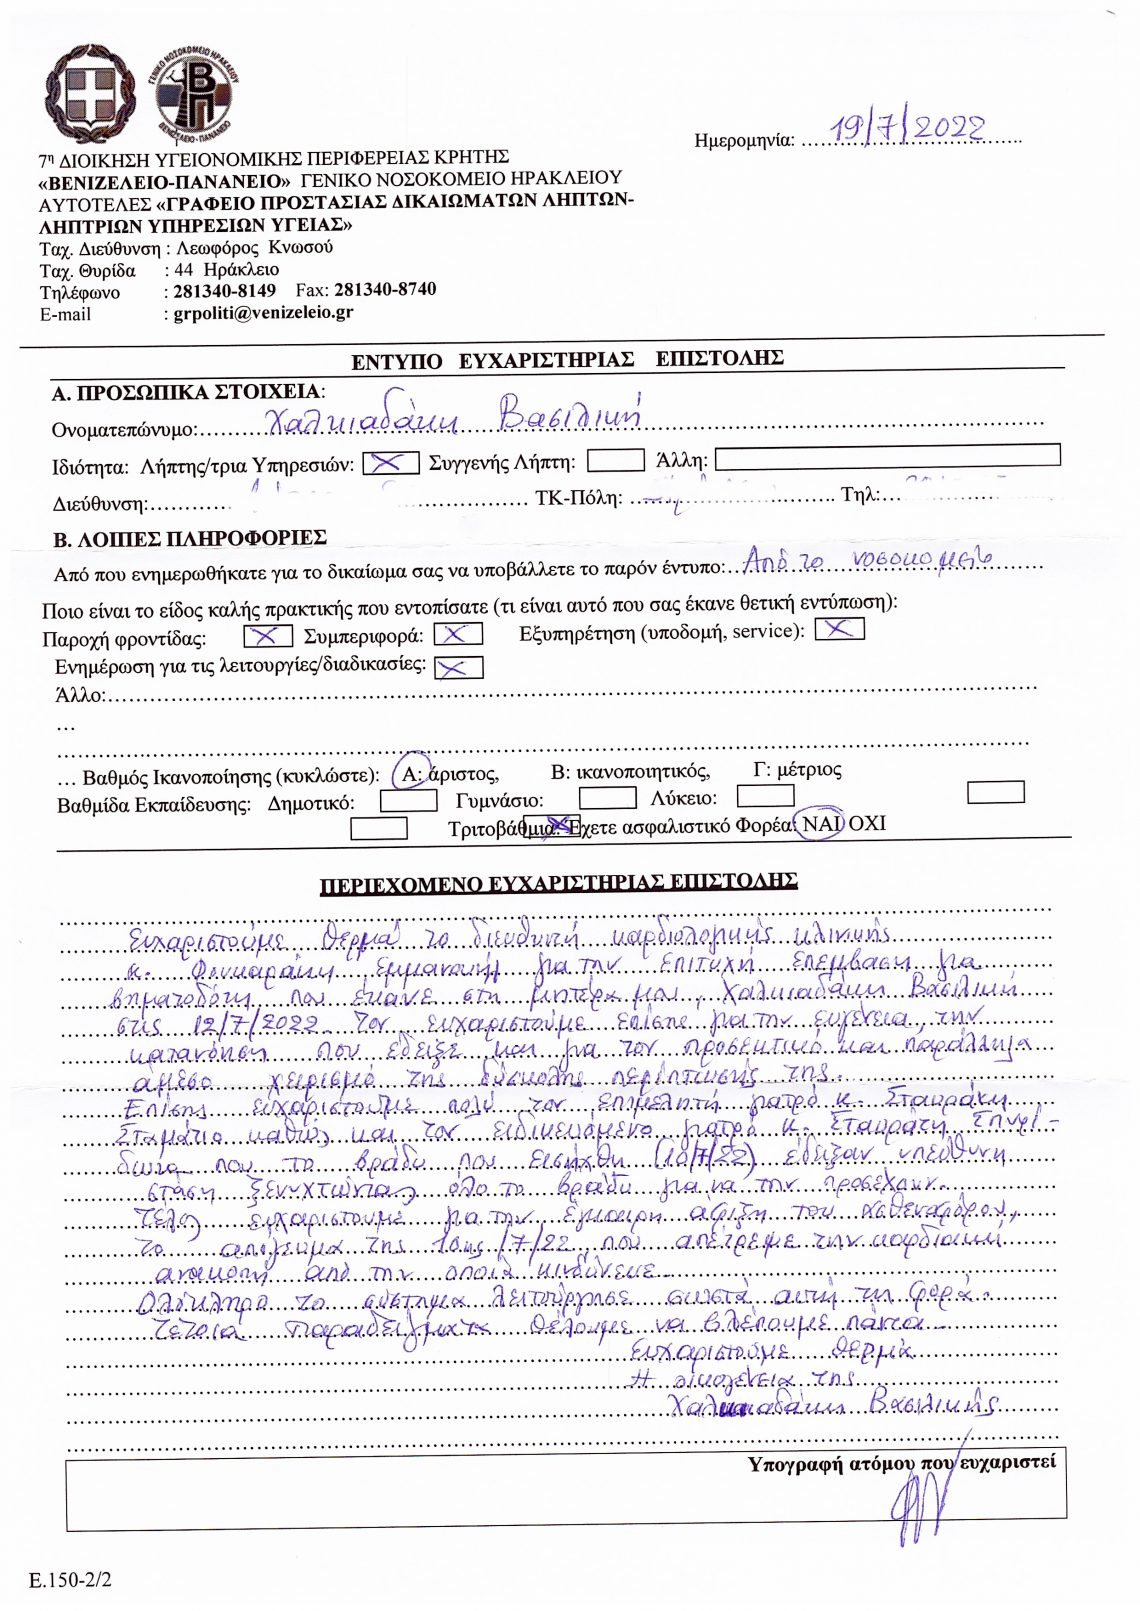 ΓΕΝΙΚΟ ΝΟΣΟΚΟΜΕΙΟ ΗΡΑΚΛΕΙΟΥ
ΒΠ
ΒΕΝΙΖΕΛΕΙΟ - ΠΑΝΑΝΕΙΟ
Ημερομηνία: 19/7/2022
7η ΔΙΟΙΚΗΣΗ ΥΓΕΙΟΝΟΜΙΚΗΣ ΠΕΡΙΦΕΡΕΙΑΣ ΚΡΗΤΗΣ
«ΒΕΝΙΖΕΛΕΙΟ-ΠΑΝΑΝΕΙΟ» ΓΕΝΙΚΟ ΝΟΣΟΚΟΜΕΙΟ ΗΡΑΚΛΕΙΟΥ
ΑΥΤΟΤΕΛΕΣ «ΓΡΑΦΕΙΟ ΠΡΟΣΤΑΣΙΑΣ ΔΙΚΑΙΩΜΑΤΩΝ ΛΗΠΤΩΝ-
ΛΗΠΤΡΙΩΝ ΥΠΗΡΕΣΙΩΝ ΥΓΕΙΑΣ»
Ταχ. Διεύθυνση : Λεωφόρος Κνωσού
Ταχ. Θυρίδα : 44 Ηράκλειο
Τηλέφωνο : 281340-8149 Fax: 281340-8740
E-mail : grpoliti@venizeleio.gr
ΕΝΤΥΠΟ ΕΥΧΑΡΙΣΤΗΡΙΑΣ ΕΠΙΣΤΟΛΗΣ
Α. ΠΡΟΣΩΠΙΚΑ ΣΤΟΙΧΕΙΑ:
Ονοματεπώνυμο: Χαλκιαδάκη Βασιλική
Ιδιότητα: Λήπτης/τρια Υπηρεσιών: X Συγγενής Λήπτη: Άλλη:
Διεύθυνση: ΤΚ-Πόλη: Τηλ:
Β. ΛΟΙΠΕΣ ΠΛΗΡΟΦΟΡΙΕΣ
Από που ενημερωθήκατε για το δικαίωμα σας να υποβάλλετε το παρόν έντυπο: Από το νοσοκομείο
Ποιο είναι το είδος καλής πρακτικής που εντοπίσατε (τι είναι αυτό που σας έκανε θετική εντύπωση):
Παροχή φροντίδας: X Συμπεριφορά: X Εξυπηρέτηση (υποδομή, service): X
Ενημέρωση για τις λειτουργίες/διαδικασίες: X
Άλλο:
…
… Βαθμός Ικανοποίησης (κυκλώστε): Α: άριστος, Β: ικανοποιητικός, Γ: μέτριος
Βαθμίδα Εκπαίδευσης: Δημοτικό: Γυμνάσιο: Λύκειο:
Τριτοβάθμια: X Έχετε ασφαλιστικό Φορέα: ΝΑΙ ΟΧΙ
ΠΕΡΙΕΧΟΜΕΝΟ ΕΥΧΑΡΙΣΤΗΡΙΑΣ ΕΠΙΣΤΟΛΗΣ
Ευχαριστούμε θερμά το διευθυντή καρδιολογικής κλινικής
κ. Φουκαράκη Εμμανουήλ για την επιτυχή επέμβαση για
βηματοδότη που έκανε στη μητέρα μου, Χαλκιαδάκη Βασιλική
στις 12/7/2022. Τον ευχαριστούμε επίσης για την ευγένεια, την
κατανόηση που έδειξε και για τον προσεκτικό και παράλληλα
άμεσο χειρισμό της δύσκολης περίπτωσής της.
Επίσης ευχαριστούμε πολύ τον επιμελητή γιατρό κ. Σταυράκη
Σταμάτιο καθώς και τον ειδικευόμενο γιατρό κ. Σταυράτη Σπυρί-
δωνα που το βράδυ που εισήχθη (10/7/22) έδειξαν υπεύθυνη
στάση ξενυχτώντας όλο το βράδυ για να την προσέχουν.
Τέλος ευχαριστούμε για την έγκαιρη άφιξη του ασθενοφόρου,
το απόγευμα της 10ης/7/22, που απέτρεψε την καρδιακή
ανακοπή από την οποία κινδύνευε.
Ολόκληρο το σύστημα λειτούργησε σωστά αυτή τη φορά.
Τέτοια παραδείγματα θέλουμε να βλέπουμε πάντα.
Ευχαριστούμε θερμά
Η οικογένεια της
Χαλκιαδάκη Βασιλικής
Υπογραφή ατόμου που ευχαριστεί
Ε.150-2/2